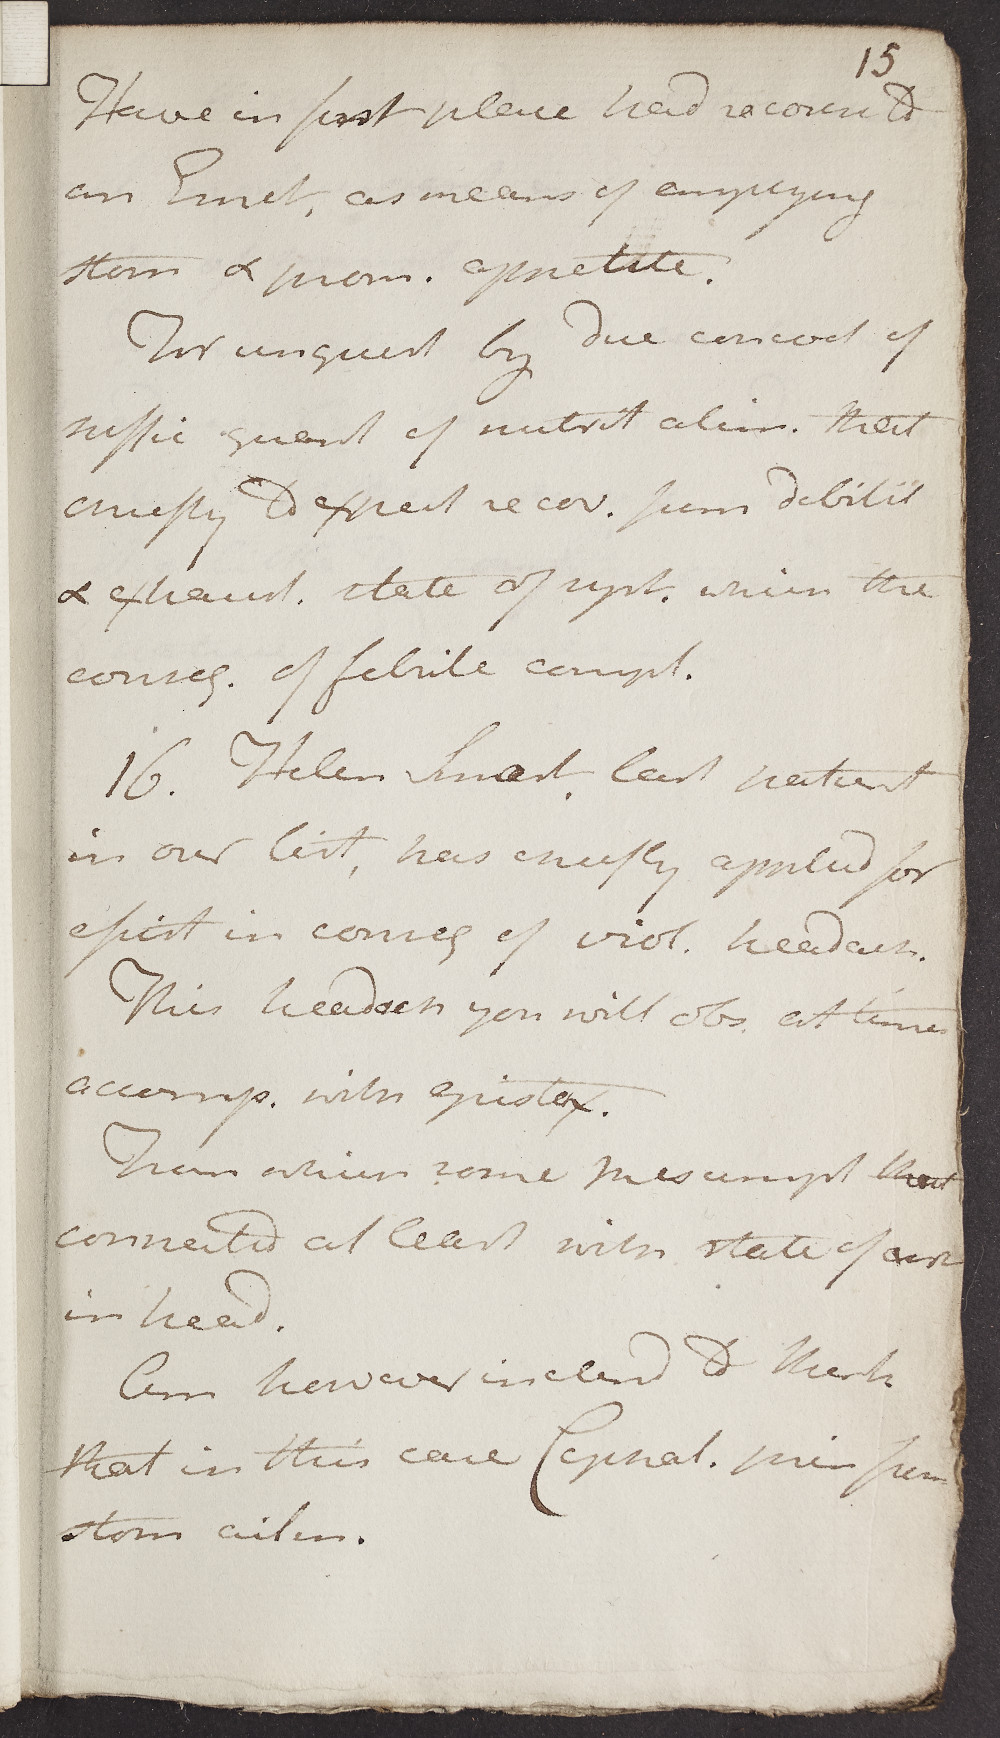 15
Have in first place had recours to
an Emet, as means of emptying
stom & prom. appetite.
For unquest by due concoct of
suffic quant of nutrit alim. that
chiefly to expect recov. from debilit
& exhaust. state of syst. which the
conseq. of febrile compl.
16. Helen Smart, last patient
in our list, has chiefly applied for
assist in conseq of viol. headach.
This headach you will obs. at times
accomp. with epistax.
From which some presumpt that
connected at least with state of circ
in head.
Am however inclend to think
that in this case Cephal. from
stom ailm.